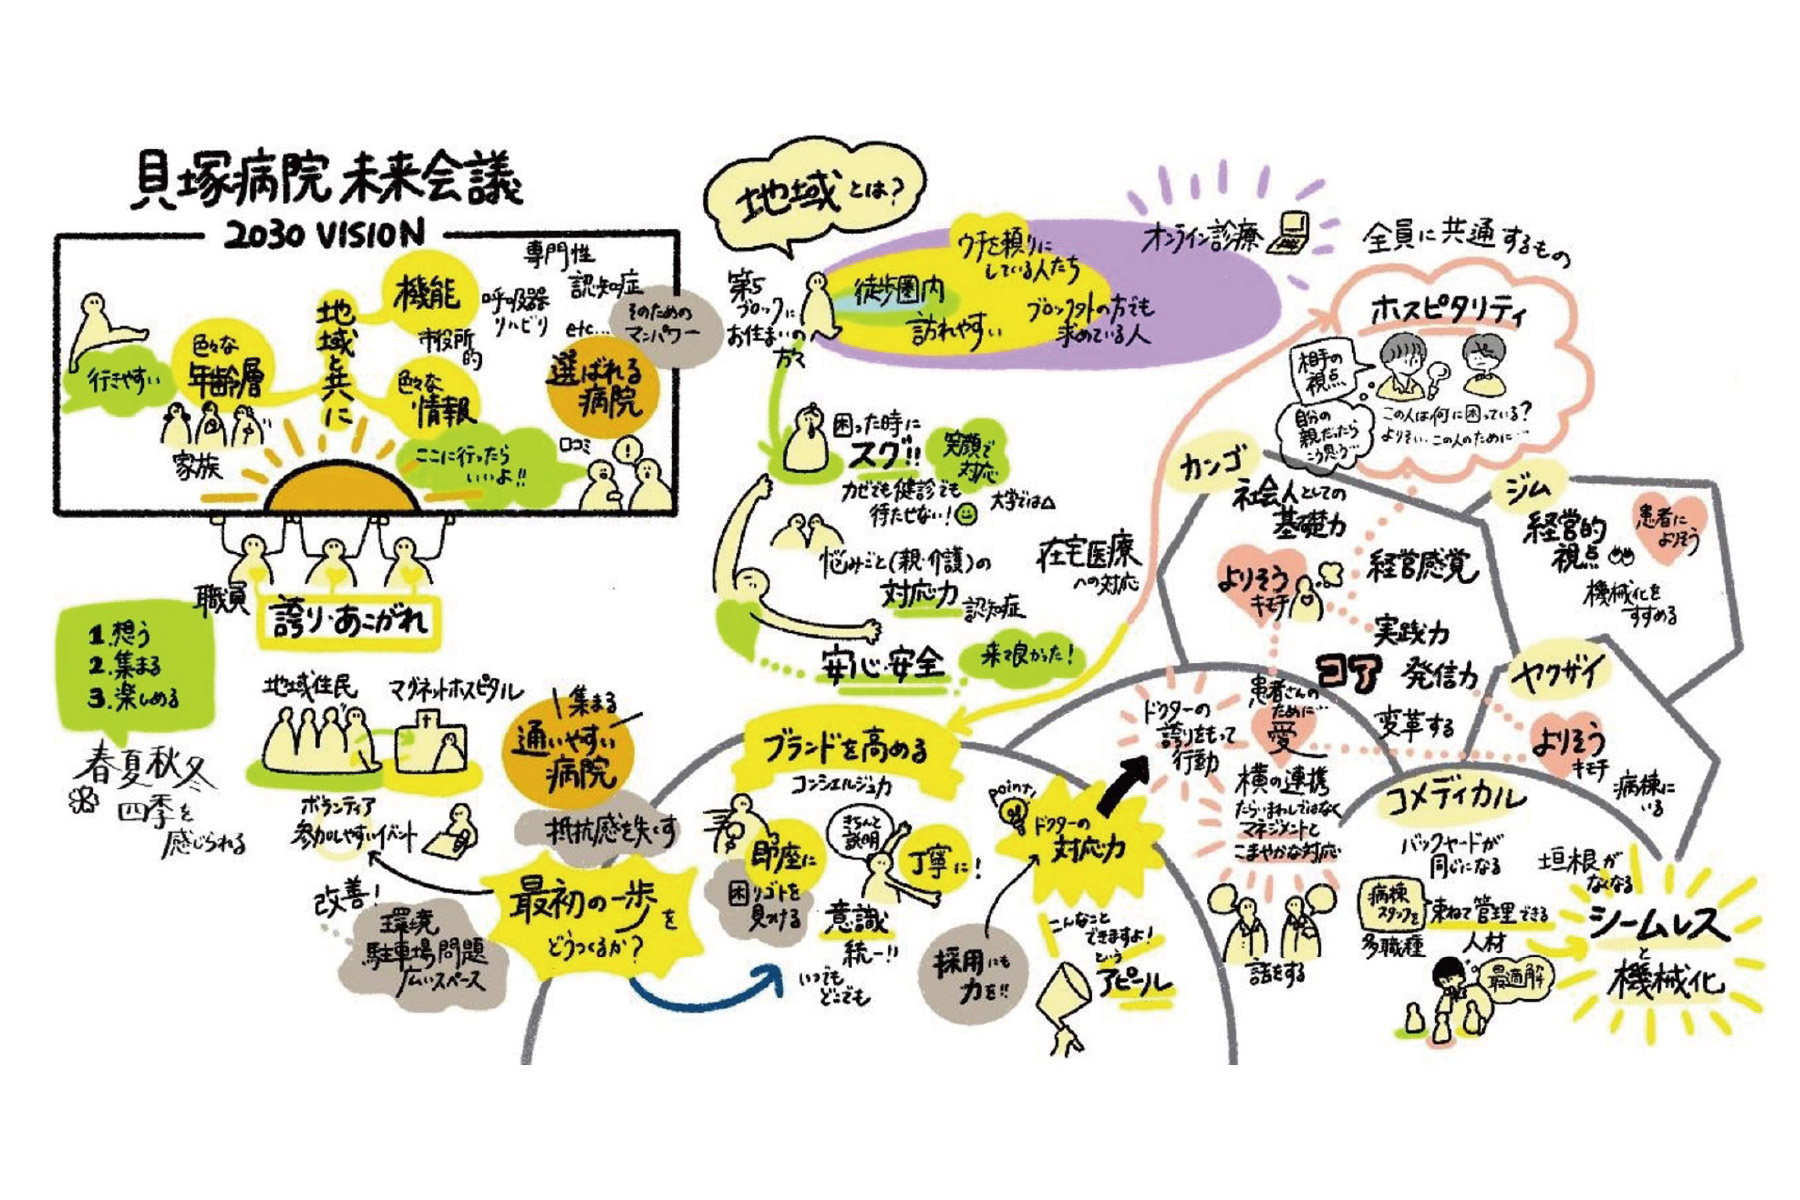 貝塚病院 未来会議
2030 VISION
行きやすい
色々な
年齢層
家族
地域と共に
機能
市役所
的
色々な
情報
専門性
認知症
呼吸器
リハビリ
etc...
そのための
マンパワー
選ばれる
病院
口コミ
ここに行ったら
いいよ!!
職員
誇り・あこがれ
1.想う
2.集まる
3.楽しめる
春夏秋冬
四季を
感じられる
地域住民
マグネットホスピタル
ボランティア
参加しやすいイベント
集まる
通いやすい
病院
抵抗感を失くす
改善!
環境
駐車場問題
広いスペース
最初の一歩を
どうつくるか?
地域とは?
第5
ブロックに
お住まいの
方々
徒歩圏内
訪れやすい
ウチを頼りに
している人たち
ブロック外の方でも
求めている人
オンライン診療
困った時に
スグ!!
笑顔で
対応
カゼでも健診でも
待たせない!
大学では△
悩みごと(親・介護)の
対応力
認知症
在宅医療
への対応
安心・安全
来て良かった!
ブランドを高める
コンシェルジュ力
即座に
困りゴトを
見つける
きちんと
説明
丁寧に!
意識
統一!!
いつでも
どこでも
採用にも
力を!!
POINT!
ドクターの
対応力
こんなこと
できますよ!
という
アピール
全員に共通するもの
ホスピタリティ
相手の
視点
自分の
親だったら
こう思う…
この人は何に困っている?
よりそい…この人のために…
カンゴ
社会人としての
基礎力
よりそう
キモチ
経営感覚
実践力
コア
発信力
変革する
ジム
経営的
視点
患者に
よりそう
機械化を
すすめる
ヤクザイ
よりそう
キモチ
病棟に
いる
ドクターの
誇りをもって
行動
患者さんの
ために…
愛
横の連携
たらいまわしではなく
マネジメントと
こまやかな対応
話をする
コメディカル
バックヤードが
同じになる
垣根が
なくなる
病棟
スタッフを
束ねて管理できる
多職種
人材
最適解
シームレス
と
機械化